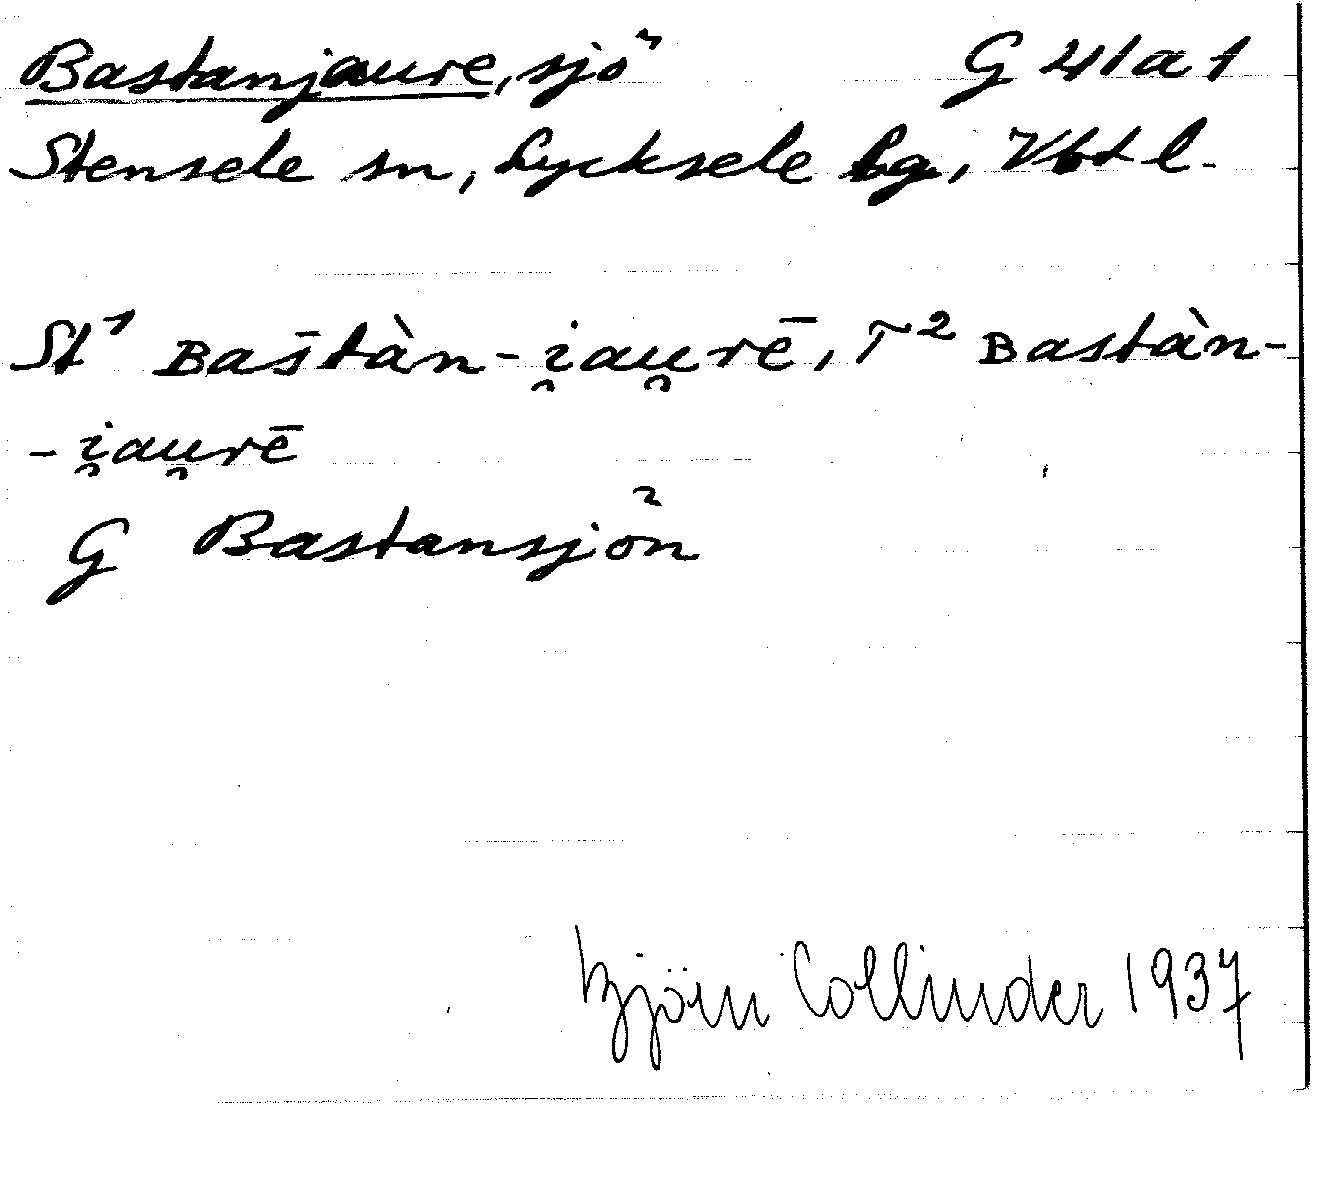 Bastanjaure, sjö G 41 a 1
Stensele sn, Lycksele lg, Vbtl.
St¹ ʙas̄tàn-i̯au̯rē, T² ʙastàn-
-i̯au̯rē
G Bastansjön
Björn Collinder 1937